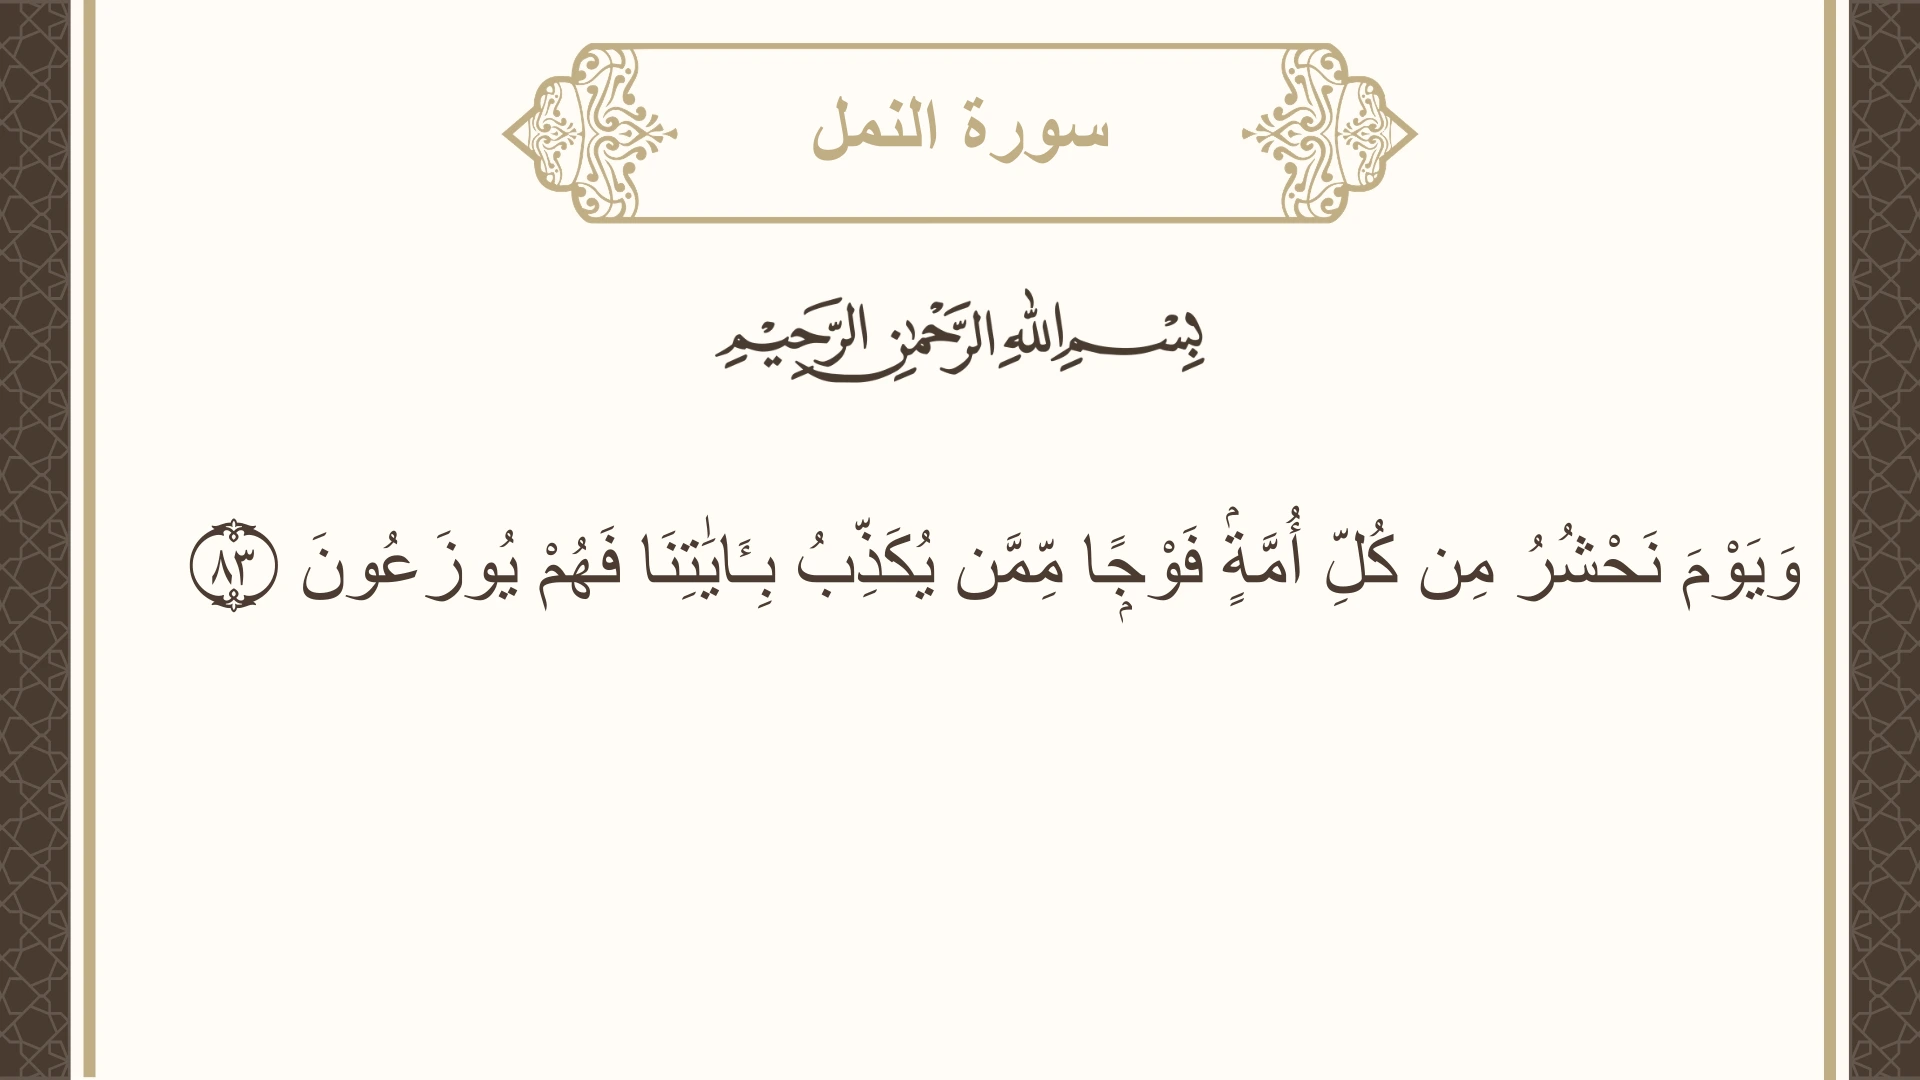 سورة النمل
بِسْمِ اللهِ الرَّحْمٰنِ الرَّحِيْمِ
وَيَوْمَ نَحْشُرُ مِن كُلِّ أُمَّةٍۢ فَوْجًۭا مِّمَّن يُكَذِّبُ بِـَٔايَـٰتِنَا فَهُمْ يُوزَعُونَ ٨٣